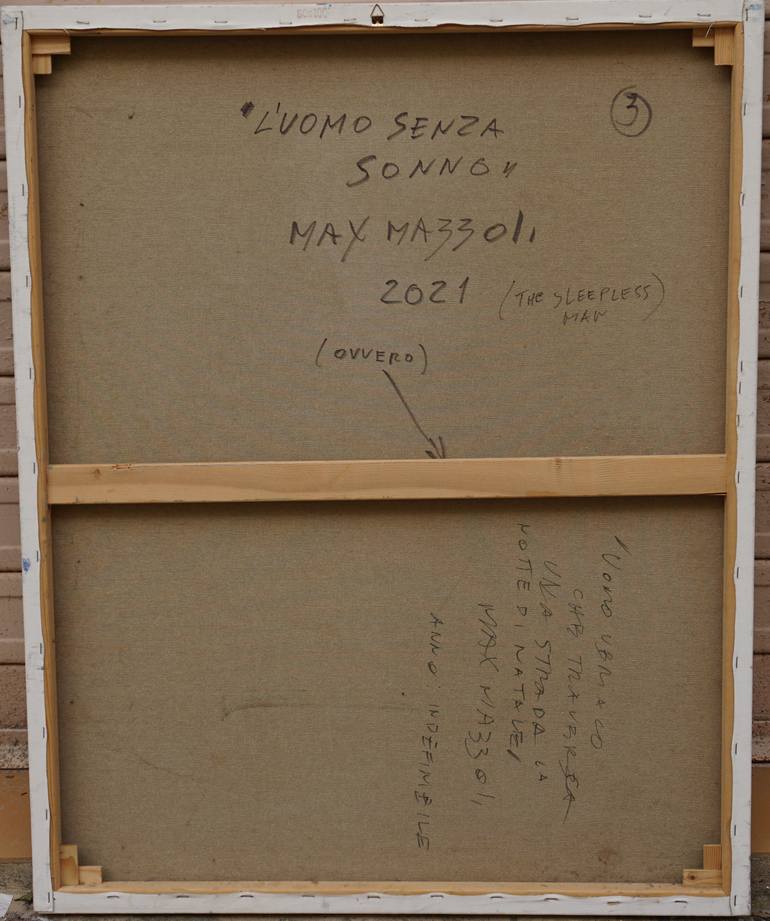 "L'UOMO SENZA
SONNO"
3
MAX MAZZOLI
2021
(THE SLEEPLESS)
MAN
(OVVERO)
"UOMO UBRIACO
CHE TRAVERSA
UNA STRADA LA
NOTTE DI NATALE"
MAX MAZZOLI
ANNO: INDEFINIBILE